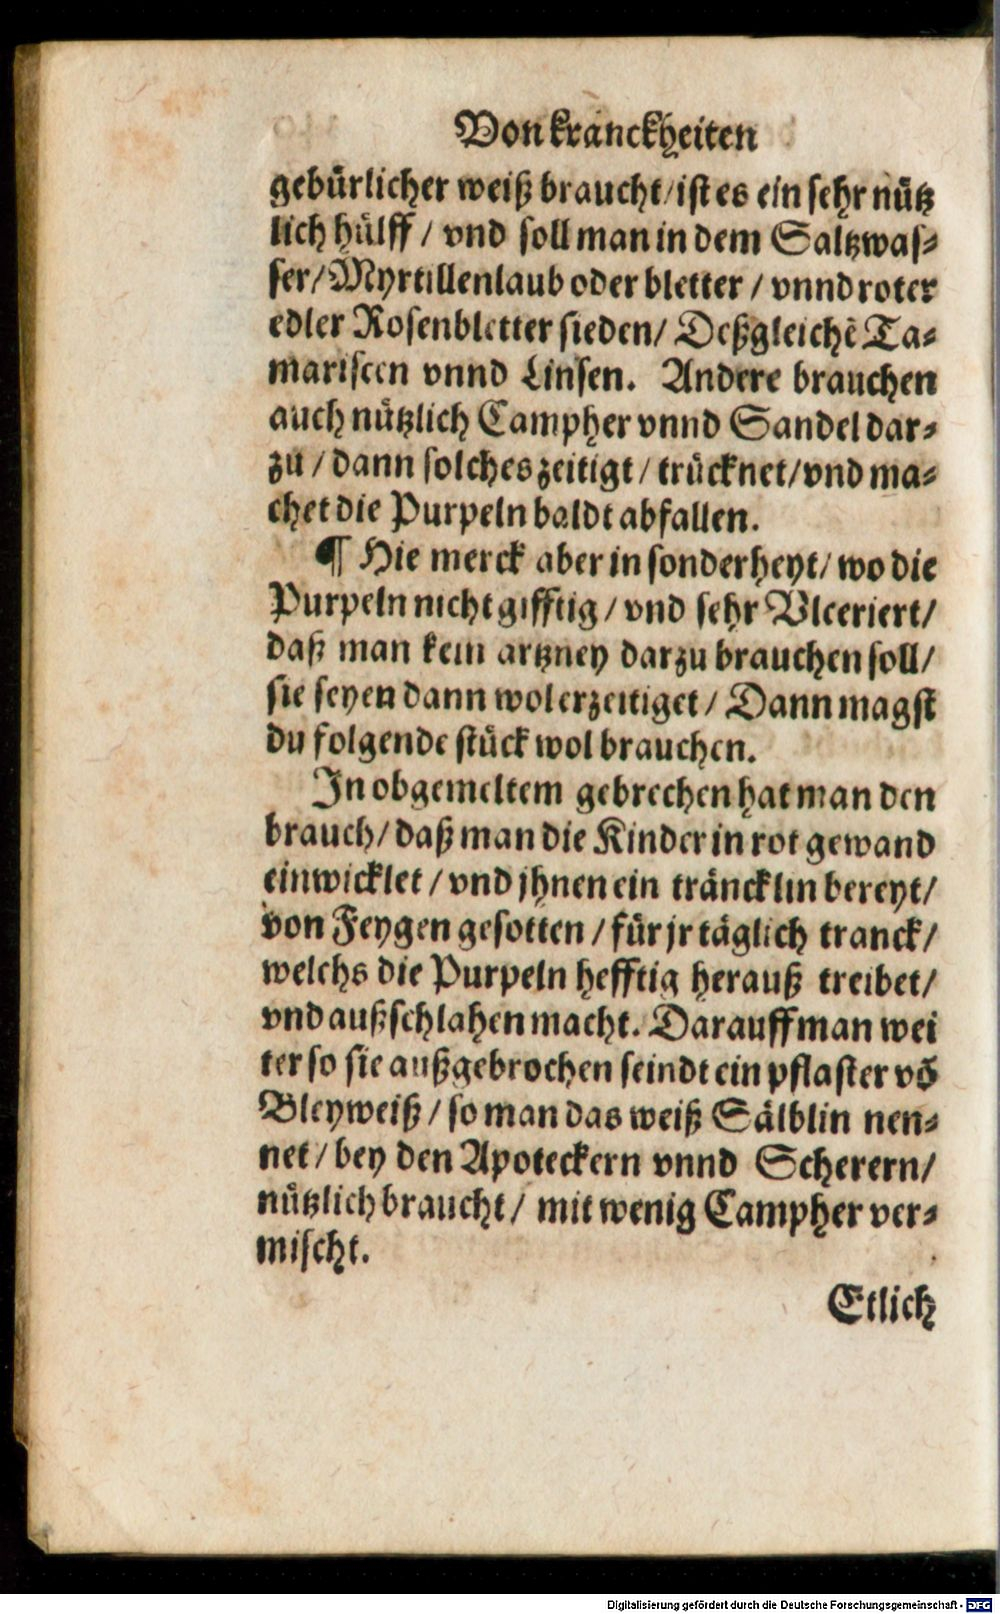 Von kranckheiten
gebürlicher weiß braucht/ ist es ein sehr nütz
lich hülff / vnd soll man in dem Saltzwas-
ser/ Myrtillenlaub oder bletter / vnnd roter
edler Rosenbletter sieden/ Deßgleichē Ta-
mariscen vnnd Linsen. Andere brauchen
auch nützlich Campher vnnd Sandel dar-
zu / dann solches zeitigt / trücknet/ vnd ma-
chet die Purpeln baldt abfallen.
¶ Hie merck aber in sonderheyt/ wo die
Purpeln nicht gifftig / vnd sehr Vlceriert/
daß man kein artzney darzu brauchen soll/
sie seyen dann wol erzeitiget / Dann magst
du folgende stück wol brauchen.
In obgemeltem gebrechen hat man den
brauch/ daß man die Kinder in rot gewand
einwicklet / vnd jhnen ein träncklin bereyt/
von Feygen gesotten / für jr täglich tranck/
welchs die Purpeln hefftig herauß treibet/
vnd außschlahen macht. Darauff man wei
ter so sie außgebrochen seindt ein pflaster võ
Bleyweiß / so man das weiß Sälblin nen-
net / bey den Apoteckern vnnd Scherern/
nützlich braucht / mit wenig Campher ver-
mischt.
Etlich
Digitalisierung gefördert durch die Deutsche Forschungsgemeinschaft - DFG